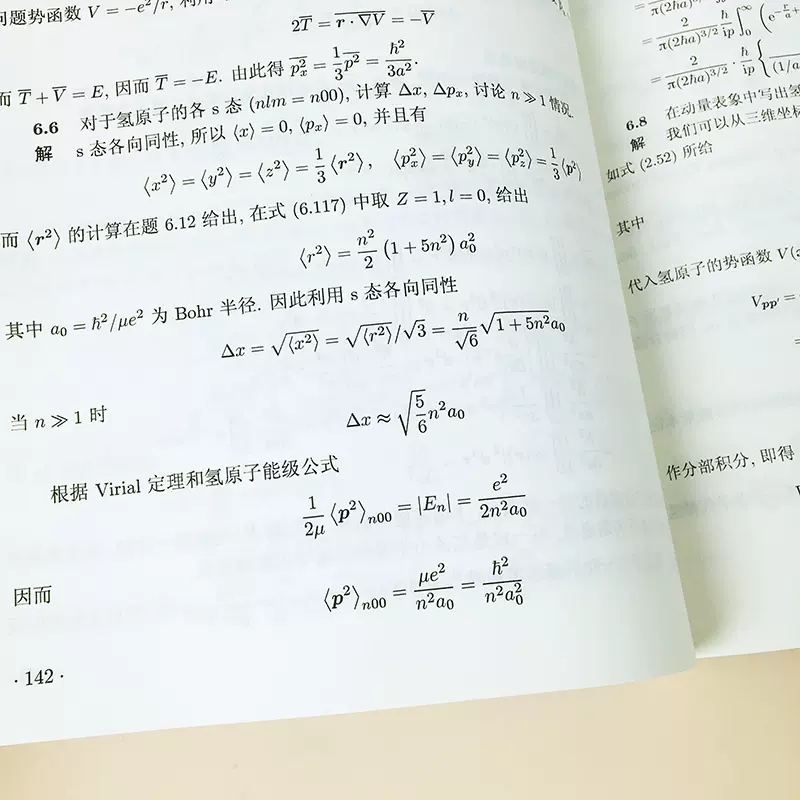 问题势函数 V = −e²/r, 利用
2T̅ = \overline{r · ∇V} = −V̅
而 T̅ + V̅ = E, 因而 T̅ = −E. 由此得 \overline{p_x²} = \frac{1}{3}\overline{p²} = \frac{ħ²}{3a²}.
6.6 对于氢原子的各 s 态 (nlm = n00), 计算 Δx, Δp_x, 讨论 n ≫ 1 情况.
解 s 态各向同性, 所以 ⟨x⟩ = 0, ⟨p_x⟩ = 0, 并且有
⟨x²⟩ = ⟨y²⟩ = ⟨z²⟩ = \frac{1}{3}⟨r²⟩, ⟨p_x²⟩ = ⟨p_y²⟩ = ⟨p_z²⟩ = \frac{1}{3}⟨p²⟩
而 ⟨r²⟩ 的计算在题 6.12 给出, 在式 (6.117) 中取 Z = 1, l = 0, 给出
⟨r²⟩ = \frac{n²}{2}(1 + 5n²)a_0²
其中 a_0 = ħ²/μe² 为 Bohr 半径. 因此利用 s 态各向同性
Δx = \sqrt{⟨x²⟩} = \sqrt{⟨r²⟩}/\sqrt{3} = \frac{n}{\sqrt{6}}\sqrt{1 + 5n²}a_0
当 n ≫ 1 时
Δx ≈ \sqrt{\frac{5}{6}}n²a_0
根据 Virial 定理和氢原子能级公式
\frac{1}{2μ}⟨p²⟩_{n00} = |E_n| = \frac{e²}{2n²a_0}
因而
⟨p²⟩_{n00} = \frac{μe²}{n²a_0} = \frac{ħ²}{n²a_0²}
· 142 ·
π(2ħa)^{3/2} ip
= \frac{2}{π(2ħa)^{3/2}} \frac{ħ}{ip} ∫_0^∞ (e^{-\frac{r}{a}+
= \frac{2}{π(2ħa)^{3/2}} · \frac{ħ}{ip} { \frac{}{(1/a
6.8 在动量表象中写出氢
解 我们可以从三维坐标
如式 (2.52) 所给
其中
代入氢原子的势函数 V(
V_{pp′} =
=
作分部积分, 即得